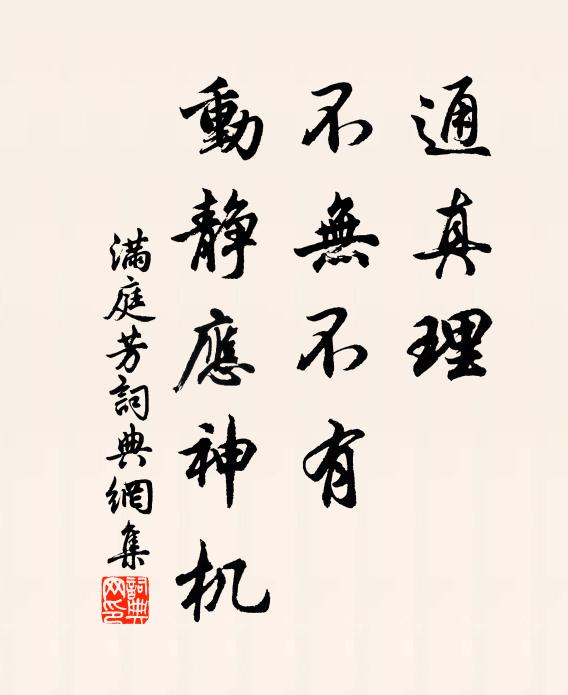 通真理
不無不有
動靜應神机
滿庭芳詞典網集
詞典网印